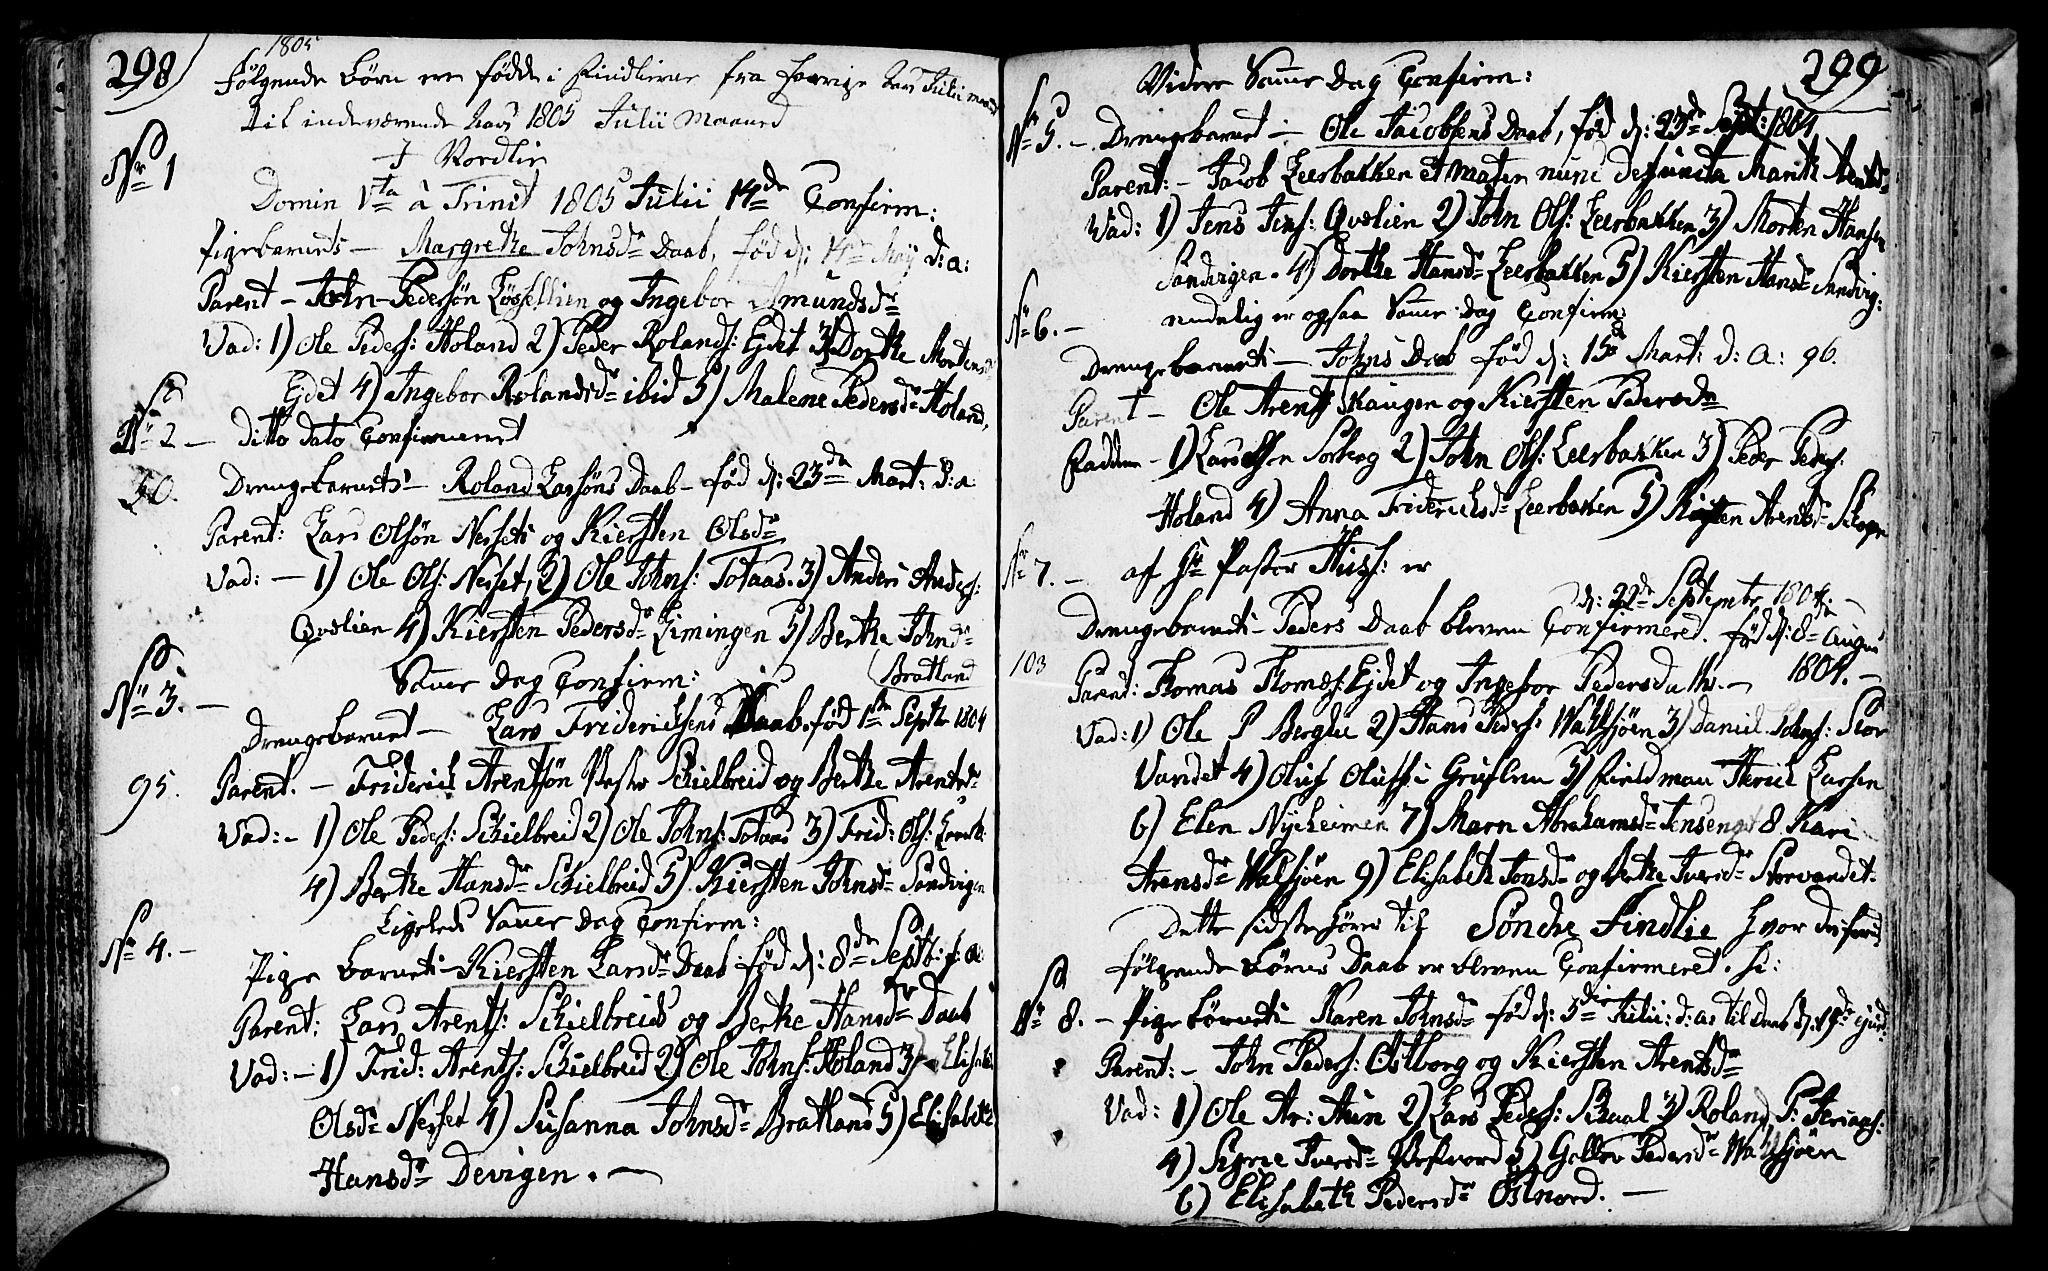 298
1805
Følgende børn ere fødde i Findlierne fra forrige Aars Julii maaned
til indeværende Aars 1805 Julii Maaned
I Nordlie
No 1
Domin Vta à Trinit 1805 Julii 14de Confirm:
Pigebarnets - Margrethe Johnsdr Daab, fød d: May d: a:
Parent - John Pedersøn og Ingebor Amundsdr
Vad: 1) Ole Peders: Holand 2) Peder Rolands: Ejdet 3) Dorthe Mortensdr
Ejdet 4) Ingebor Rolandsdr ibid 5) Malene Pedersdr Holand,
No 2 - ditto dato Confirmeret
Drengebarnets - Roland Larsøns Daab - fød d: 23de Mart: d: a:
Parent: Lars Olsøn Nerset og Kiersten Olsdr
Vad: - 1) Ole Ols: Nerset, 2) Ole Johns: Totaas. 3) Anders Anders:
Qvelien 4) Kiersten Pedersdr Limingen 5) Berthe Johnsdr
Bratland
Samme Dag Confirm:
No 3. -
Drengebarnet - Lars Friderichsens Daab. fød 1ste Septbr 1804
95.
Parent. - Friderich Arentsøn Schielbreid og Berthe Arentsdr
Vad: - 1) Ole Peders: Schielbreid 2) Ole Johns: Totaas 3) Frid: Ols:
4) Berthe Hansdr Schielbreid 5) Kiersten Johnsdr Sandvigen
Ligeledes Samme Dag Confirm:
No 4. -
Pige barnets - Kiersten Larsdr Daab fød d: 8de Septb: f: a:
Parent: Lars Arents: Schielbreid og Berthe Hansdr Daab
Vad: - 1) Frid: Arents: Schielbreid 2) Ole Johns: Holand 3) Elisabeth
Olsdr Nerset 4) Susanna Johnsdr Bratland 5) Elisabeth
Hansdr Devigen. -
299
Videre Samme Dag Confirm:
No 5. - Drengebarnet - Ole Jacobsens Daab, fød d: 23de Sept: 1804
Parent: - Jacob Leerbakken et mater nunc defuncta Marith Arentsdr
Vad: 1) Jens Jens: Qvelien 2) John Ols: Leerbakken 3) Morten Hansen
Sandvigen. 4) Dorthe Hansdr Leerbakken 5) Kiersten Hansdr Sandvig:
No 6. -
endelig er ogsaa Samme Dag Confirm:
Drengebarnets - Johns Daab fød d: 15de Mart: d: a: 96.
Parent - Ole Arents Skaugen og Kiersten Persdr
Faddere - 1) Lars Sorberg 2) John Ols: Leerbakken 3) Peder Peders:
Holand 4) Anna Friderichsdr Leerbakken 5) Arentsdr
No 7. - af Hr Pastor er
d: 22de Septembr 1804. -
Drengebarnets - Peders Daab bleven Confirmeret. fød d: 8de Augus
103
Parent: Thomas Thomes: Ejdet og Ingebor Pedersdatter - 1804. -
Vad: 1) Ole P Berglie 2) Hans Peders: Walsjøen 3) Daniel Johns: Stor
Vandet 4) Oluf Olufs: i 5) fieldman Henrik Larsen
6) Elen Nyeheimen 7) Marn Abrahamsdr 8 Kari
Arensdr Walsjøen 9) Elisabeth Jonsdr og Berthe Iversdr Storvandet.
Dette sidste hører til Søndre Findlie hvor desforuden
følgende børns Daab er bleven Confirmeret. s:
No 8. - Pige børnets Karen Johnsdr fød d: 5de Julii: d: a: til Daab d: 14de ejusd:
Parent: - John Peders: Ostborg og Kiersten Arentsdr
Vad: 1) Ole Ar: 2) Lars Peders: 3) Roland P:
4) Signe Iversdr 5) Gollov Pedersdr Walsjøen
6) Elisabeth Pedersdr Østnord. -